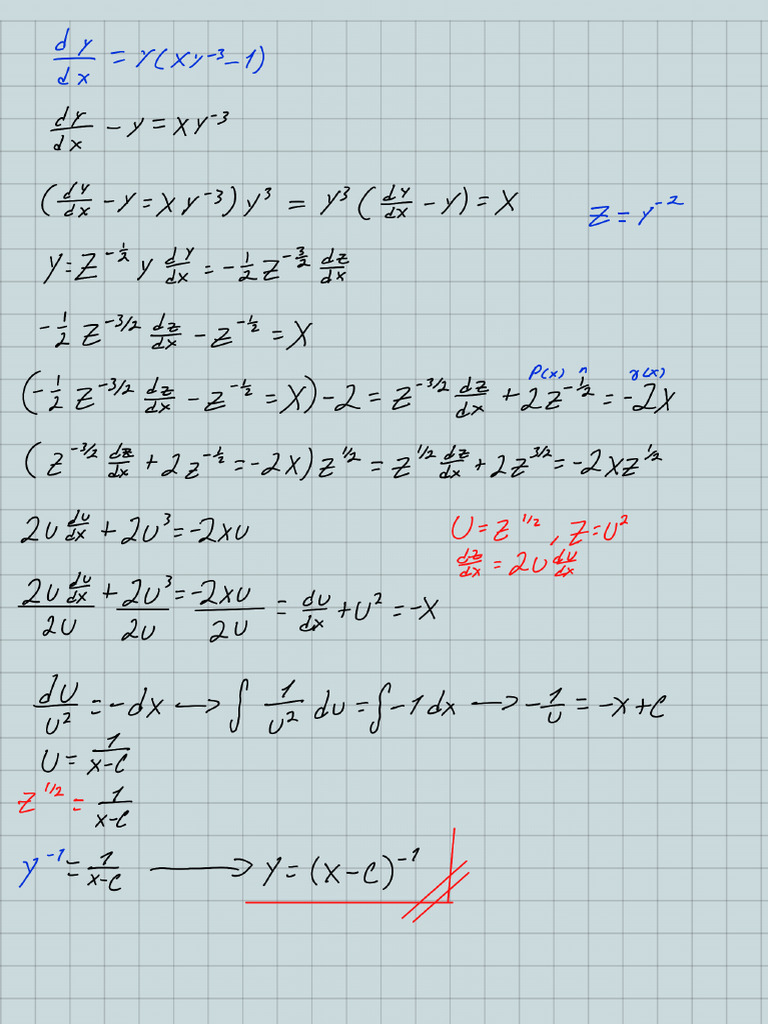 dy/dx = y(xy⁻³-1)
dy/dx - y = xy⁻³
(dy/dx - y = xy⁻³)y³ = y³(dy/dx - y) = x
z = y⁻²
y = z^(-1/2) y dy/dx = -1/2 z^(-3/2) dz/dx
-1/2 z^(-3/2) dz/dx - z^(-1/2) = x
P(x) n r(x)
(-1/2 z^(-3/2) dz/dx - z^(-1/2) = x) -2 = z^(-3/2) dz/dx + 2z^(-1/2) = -2x
(z^(-3/2) dz/dx + 2z^(-1/2) = -2x) z^(1/2) = z^(1/2) dz/dx + 2z^(3/2) = -2xz^(1/2)
2u du/dx + 2u³ = -2xu
u = z^(1/2), z = u²
dz/dx = 2u du/dx
2u du/dx/2u + 2u³/2u = -2xu/2u = du/dx + u² = -x
du/u² = -dx → ∫ 1/u² du = ∫ -1 dx → -1/u = -x+c
u = 1/(x-c)
z^(1/2) = 1/(x-c)
y⁻¹ = 1/(x-c) → y = (x-c)⁻¹